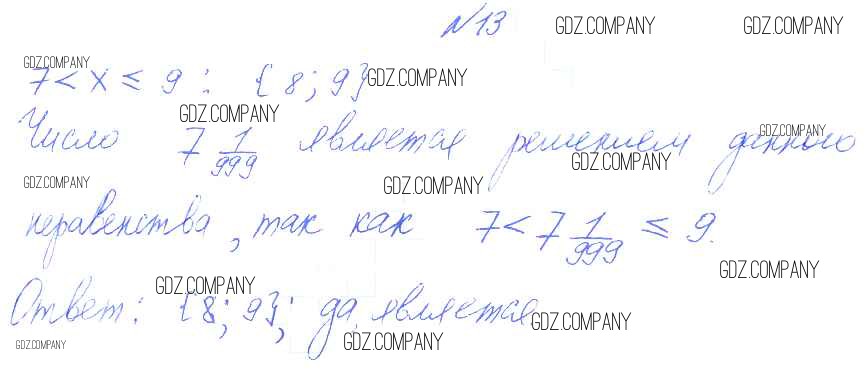 №13 GDZ.COMPANY GDZ.COMPANY
GDZ.COMPANY
7 < x ≤ 9 : {8; 9} GDZ.COMPANY
GDZ.COMPANY
Число 7 1/999 является решением данного GDZ.COMPANY
GDZ.COMPANY
GDZ.COMPANY GDZ.COMPANY
неравенства, так как 7 < 7 1/999 ≤ 9.
GDZ.COMPANY
GDZ.COMPANY
Ответ: {8; 9}; да, является GDZ.COMPANY
GDZ.COMPANY GDZ.COMPANY